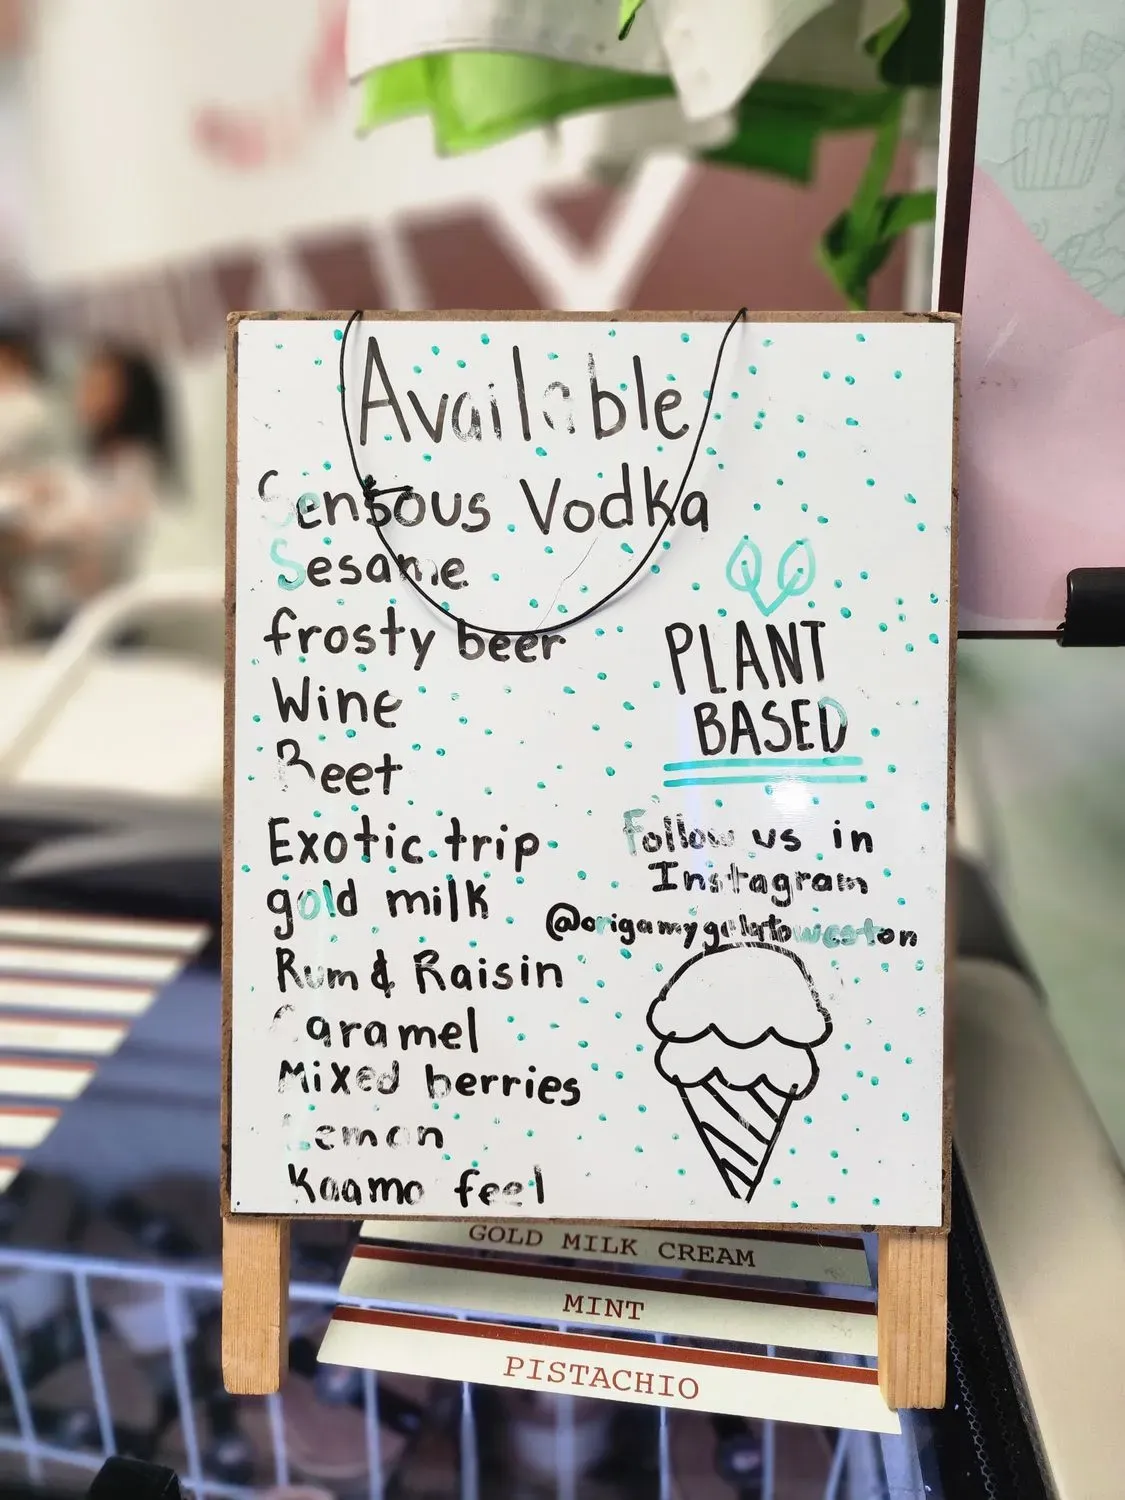 Available
Sensous Vodka
Sesame
frosty beer
Wine
Beet
Exotic trip
gold milk
Rum & Raisin
Caramel
Mixed berries
Lemon
Kaama feel
PLANT
BASED
Follow us in
Instagram
@origamygelatoweston
GOLD MILK CREAM
MINT
PISTACHIO